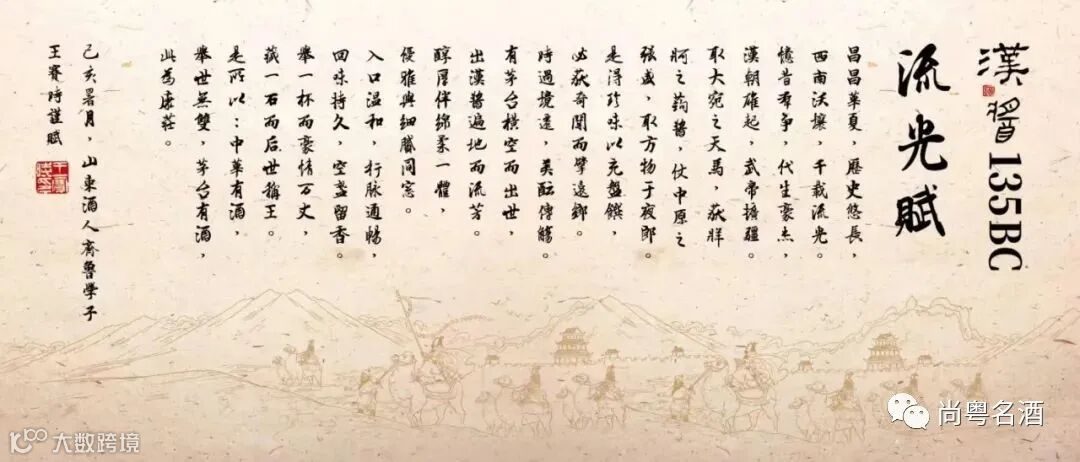 漢醬135BC
流光賦
昌昌華夏，歷史悠長，
西南沃壤，千載流光。
憶昔群爭，代生豪杰，
漢朝雄起，武帝擴疆。
取大宛之天馬，获牂
牁之蒟醬，仗中原之
張威，取方物于夜郎。
是得珍味以充盤饌，
必获奇聞而擘遠鄉。
時過境遷，美酝傳觴。
有茅台橫空而出世，
出漢醬遍地而流芳。
醇厚伴綿柔一體，
優雅與細膩同窓。
入口温和，行脉通暢，
回味持久，空盞留香。
舉一杯而豪情万丈，
藏一石而后世稱王。
是所以：中華有酒，
舉世無雙，茅台有酒，
此為康莊。
己亥暑月，山東酒人齊魯學子
王賽時謹賦
尚粤名酒
大数跨境